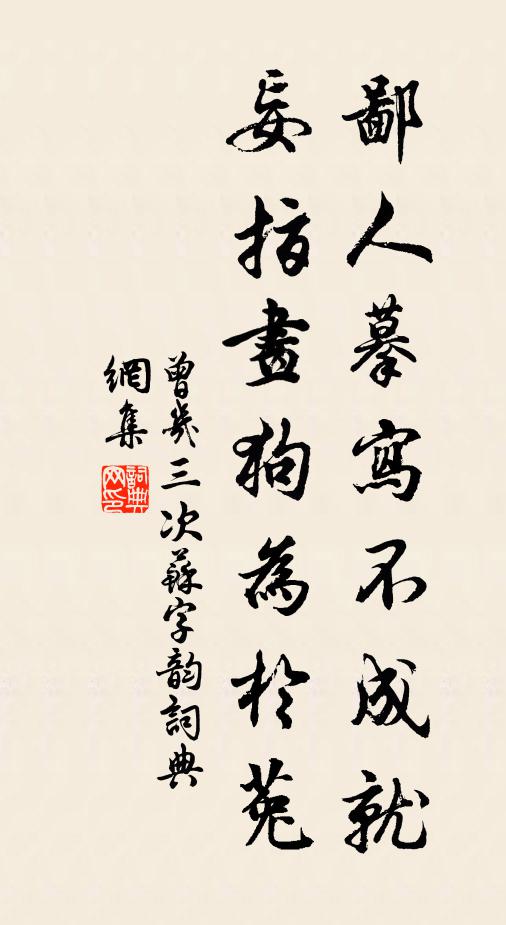 鄙人摹寫不成就
妄指畫狗為於菟
曾幾三次蘇字韵詞典
網集
詞典网印